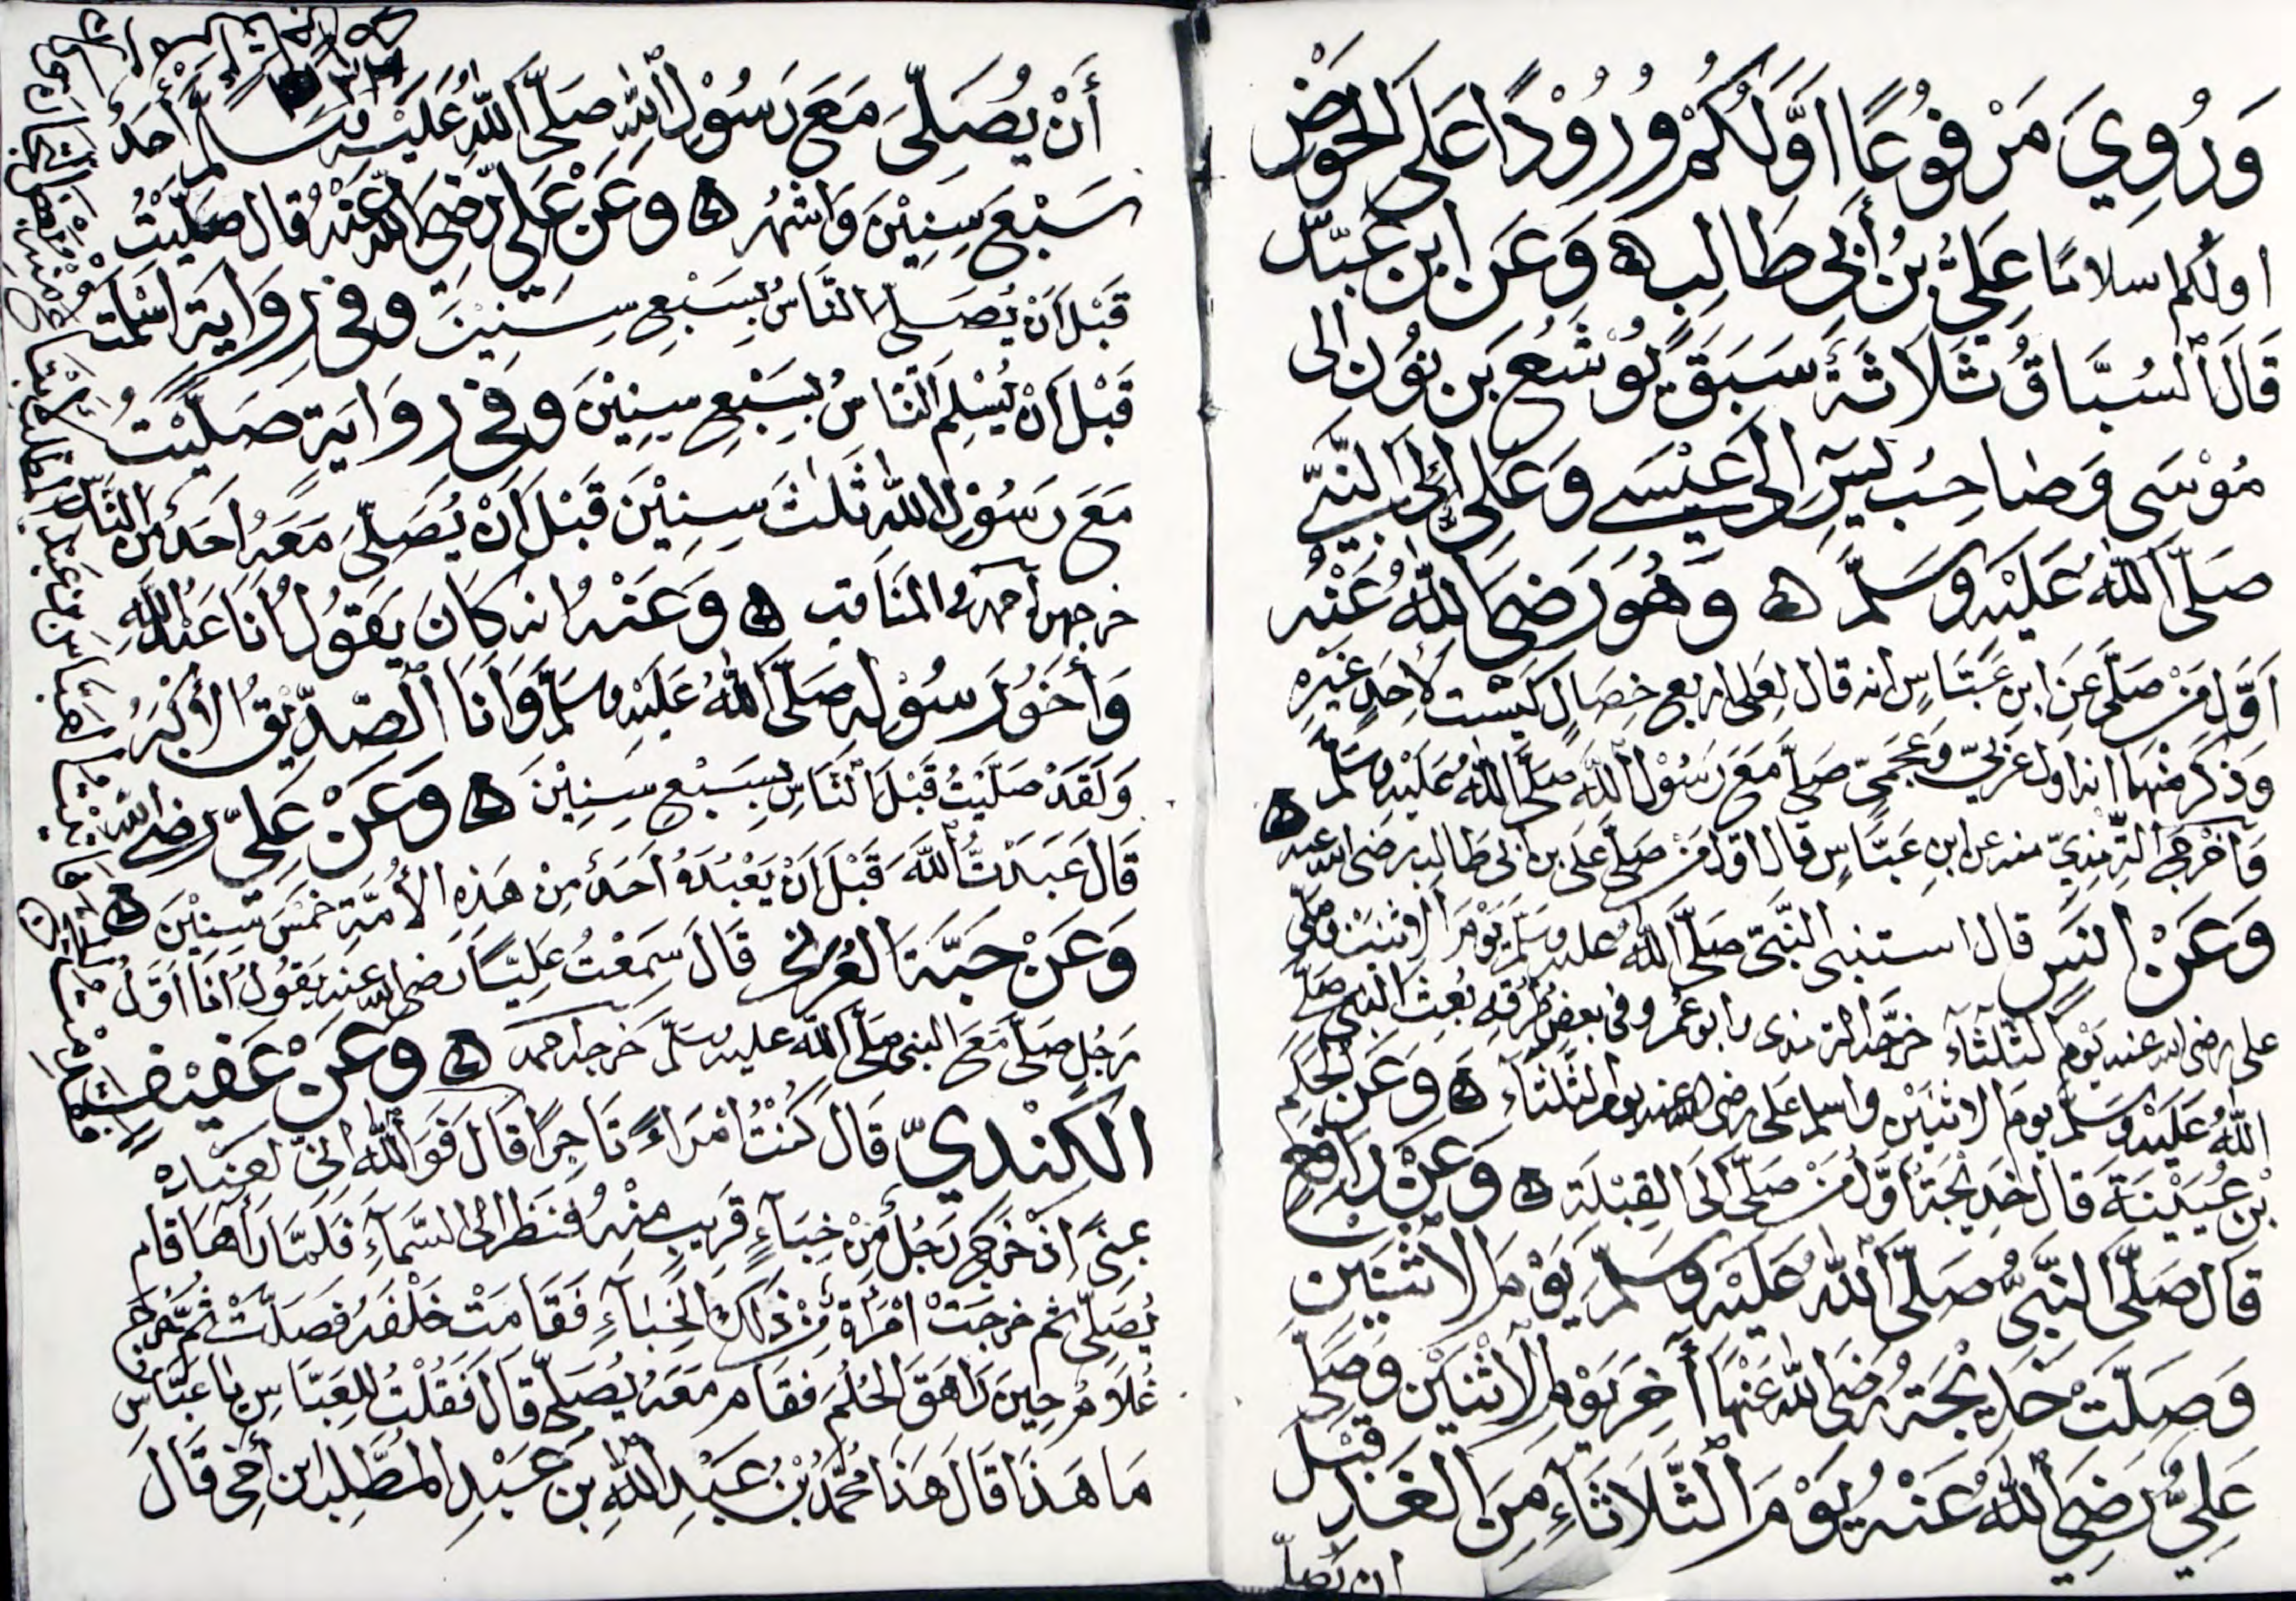 وَرُوِيَ مَرْفُوعًا اَوَّلُكُمْ وُرُوْدًا عَلَى الحَوْضِ
اولكم اسلامًا عَلِيُّ بْنُ أَبِي طَالِبٍ ه وَعَن ابن عَبَّاس
قَالَ السُبَّاقُ ثَلَاثَةٌ سَبَقَ يُوشَع بن نوُن الى
مُوْسَى وَصَاحِبُ يسٓ اِلَى عِيْسَے وَعَلِي اِلَى النَّبِيّ
صَلَّى اللهُ عَلَيْهِ وَسَلَّمَ ه وَهُوَ رَضِيَ اللهُ عَنْهُ
اَوَّلُ مَنْ صَلَّى عَنِ ابن عَبَّاسٍ انه قال لِعَلى اربع خِصَالٍ لَيْسَت لِاَحَدٍ غَيْرِهِ
وَذَكَرَ مِنْهَا انه اول عَرَبِيّ وَعَجَمِيّ صَلَّى مَعَ رَسُوْلِ اللهِ صَلَّى اللهُ عَلَيْهِ وَسَلَّمَ ه
وَاَخْرَجَ التِّرْمِذِيّ عن ابنِ عَبَّاسٍ قال اوّل مَنْ صَلَّى عَلى بن ابى طالب رضى الله عنه
وَعَنْ انَسٍ قال استنبى النَّبِيّ صَلَّى اللهُ عليه وسلّم يَوْمَ الاِثنَيْن وصَلَّى
على رضى الله عنه يَوْمَ الثلثَآءِ خرّجه الترمذى وابو عُمر وفى بعض طُرُقِهِ بُعِثَ النبى صَلَّى
اللهُ عَلَيْهِ وَسَلَّمَ يَومَ الاثنَيْن واسلم عَلى رضى الله عنه يوم الثَّلثَآءِ ه وَعَن الحَكَم
بْنِ عُيَيْنَةَ قال خَدِيْجَةُ اَوَّلُ مَنْ صَلَّى اِلَى القِبْلَةِ ه وَعَنْ رَافِعٍ
قَالَ صَلَّى النَّبِيُّ صَلَّى اللهُ عَلَيْهِ وَسَلَّمَ يَوْمَ الاثْنَيْنِ
وَصَلَّتْ خَدِيْجَةُ رَضِىَ اللهُ عَنْهَا آخِرَ يَوْمِ الاثْنَيْن وَصَلَّى
عَلِيُّ رَضِيَ اللهُ عَنْهُ يَوْمَ الثَّلَاثَاءِ مِنَ الْغَدِ قَبْلَ
ان يُصَلِّى
أَنْ يُصَلِّىَ مَعَ رَسُوْلِ اللهِ صَلَّى اللهُ عَلَيْهِ وَسَلَّمَ أَحَدٌ
سَبْعَ سِنِيْنَ وَاَشْهُر ه وَعَنْ عَلِي رَضِىَ اللهُ عَنْهُ قَال صَلَّيْتُ
قَبْلَ اَنْ يُصَلِّى النَّاسُ بِسَبْعِ سِنِيْنَ وفى رِوَايَة اَسْلَمْتُ
قَبْلَ اَنْ يُسْلِمَ النَّاسُ بِسَبْعِ سِنِيْنَ وَفى رِوَايَةٍ صَلَّيْتُ
مَعَ رَسُوْلِ اللهِ ثَلٰثَ سِنِيْنَ قَبْلَ اَنْ يُصَلِّىَ مَعَهُ اَحَدٌ مِنَ النَّاسِ
خرجهن احمد فى المنَاقب ه وَعَنْهُ انه كَانَ يَقُوْلُ اَنَا عَبْدُ اللهِ
وَأَخُو رَسُوْلِهِ صَلَّى اللهُ عَلَيْهِ وسَلَّم وَاَنَا الصِّدِّيْقُ الاَكْبَرُ
وَلَقَدْ صَلَّيْتُ قَبْلَ النَّاسِ بِسَبْعِ سِنِيْنَ ه وَعَنْ عَلِيّ رضى الله
قَالَ عَبَدْتُ اللهَ قَبْلَ اَنْ يَعْبُدَهُ اَحَدٌ مِنْ هَذِهِ الاُمَّةِ خَمْسَ سِنِيْنَ ه
وَعَنْ حَبَّةَ العُرَنِى قَالَ سَمِعْتُ عَلِيًّا رضى الله عنه يَقُوْلُ اَنَا اَوَّلُ
رَجُلٍ صَلَّى مَعَ النبى صَلَّى اللهُ عليه وسَلَّمَ خَرجه احمد ه وَعَنْ عَفِيْف
الكِنْدِيّ قَالَ كُنْتُ امْرَاءً تَاجِرًا قَالَ فَوَاللهِ اِنّى لَعِنْدَهُ
بِمِنًى اِذْ خَرَجَ رَجُلٌ مِنْ خِبَآءٍ قَرِيبٍ مِنْهُ فَنَظَرَ اِلى السَّمَآءِ فَلَمَّا رَآهَا قَام
يُصَلِّى ثم خرجَتْ امْرَاةٌ مِنْ ذٰلِكَ الخِبَآءِ فَقَامَتْ خَلْفَهُ فَصَلَّتْ ثُمَّ خَرَجَ
غُلَامٌ حِينَ رَاهَقَ الحُلُمَ فَقَام مَعَهُ يُصَلِّى قَالَ فَقُلْتُ لِلعَبَّاسِ يا عَبَّاسُ
مَا هَذَا قَالَ هَذَا مُحَمَّدُ بْنُ عَبْدِ اللهِ بن عَبْدِ المطَّلِب ابن أخى قَالَ